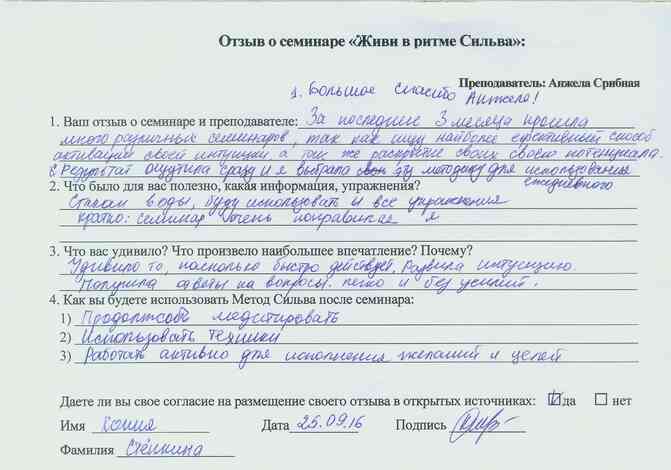 Отзыв о семинаре «Живи в ритме Сильва»:
Преподаватель: Анжела Срибная
1. Большое спасибо Анжела!
1. Ваш отзыв о семинаре и преподавателе: За последние 3 месяца прошла
много различных семинаров, так как ищу наиболее эфективный способ
активации своей интуиции, а так же раскрытие своих своего потенциала.
Результат ощутила сразу и я выбрала эту методику для использования
ежедневного
2. Что было для вас полезно, какая информация, упражнения?
Стакан воды, буду использовать и все упражнения
кратко: семинар очень понравился я
3. Что вас удивило? Что произвело наибольшее впечатление? Почему?
Удивило то, насколько быстро действует, развила интуицию.
Получила ответы на вопросы. легко и без усилий.
4. Как вы будете использовать Метод Сильва после семинара:
1) Продолжать медитировать
2) Использовать техники
3) Работать активно для исполнения желаний и целей
Даете ли вы свое согласие на размещение своего отзыва в открытых источниках: да нет
Имя Ксения Дата 25.09.16 Подпись
Фамилия Стёпкина